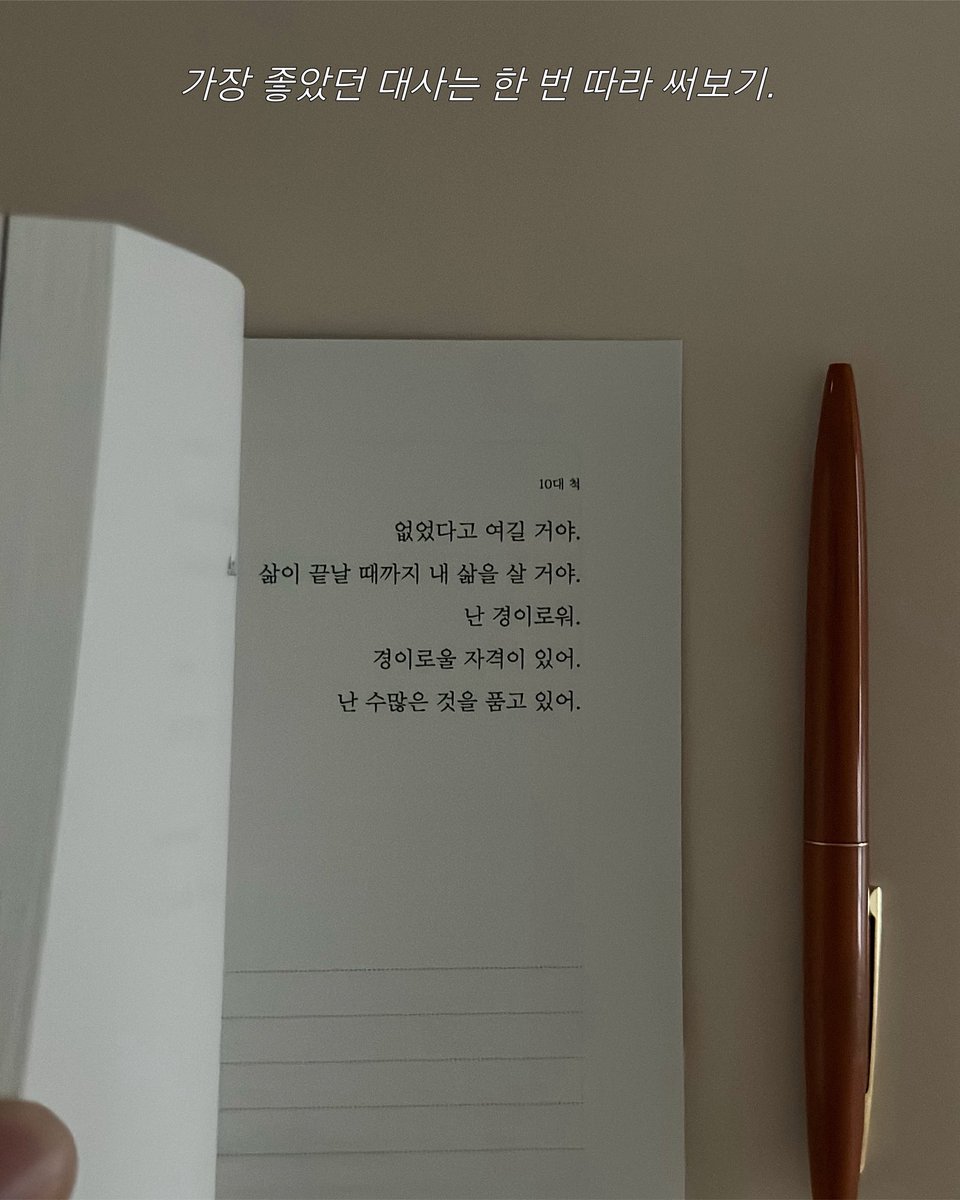 가장 좋았던 대사는 한 번 따라 써보기.
10대 척
없었다고 여길 거야.
삶이 끝날 때까지 내 삶을 살 거야.
난 경이로워.
경이로울 자격이 있어.
난 수많은 것을 품고 있어.